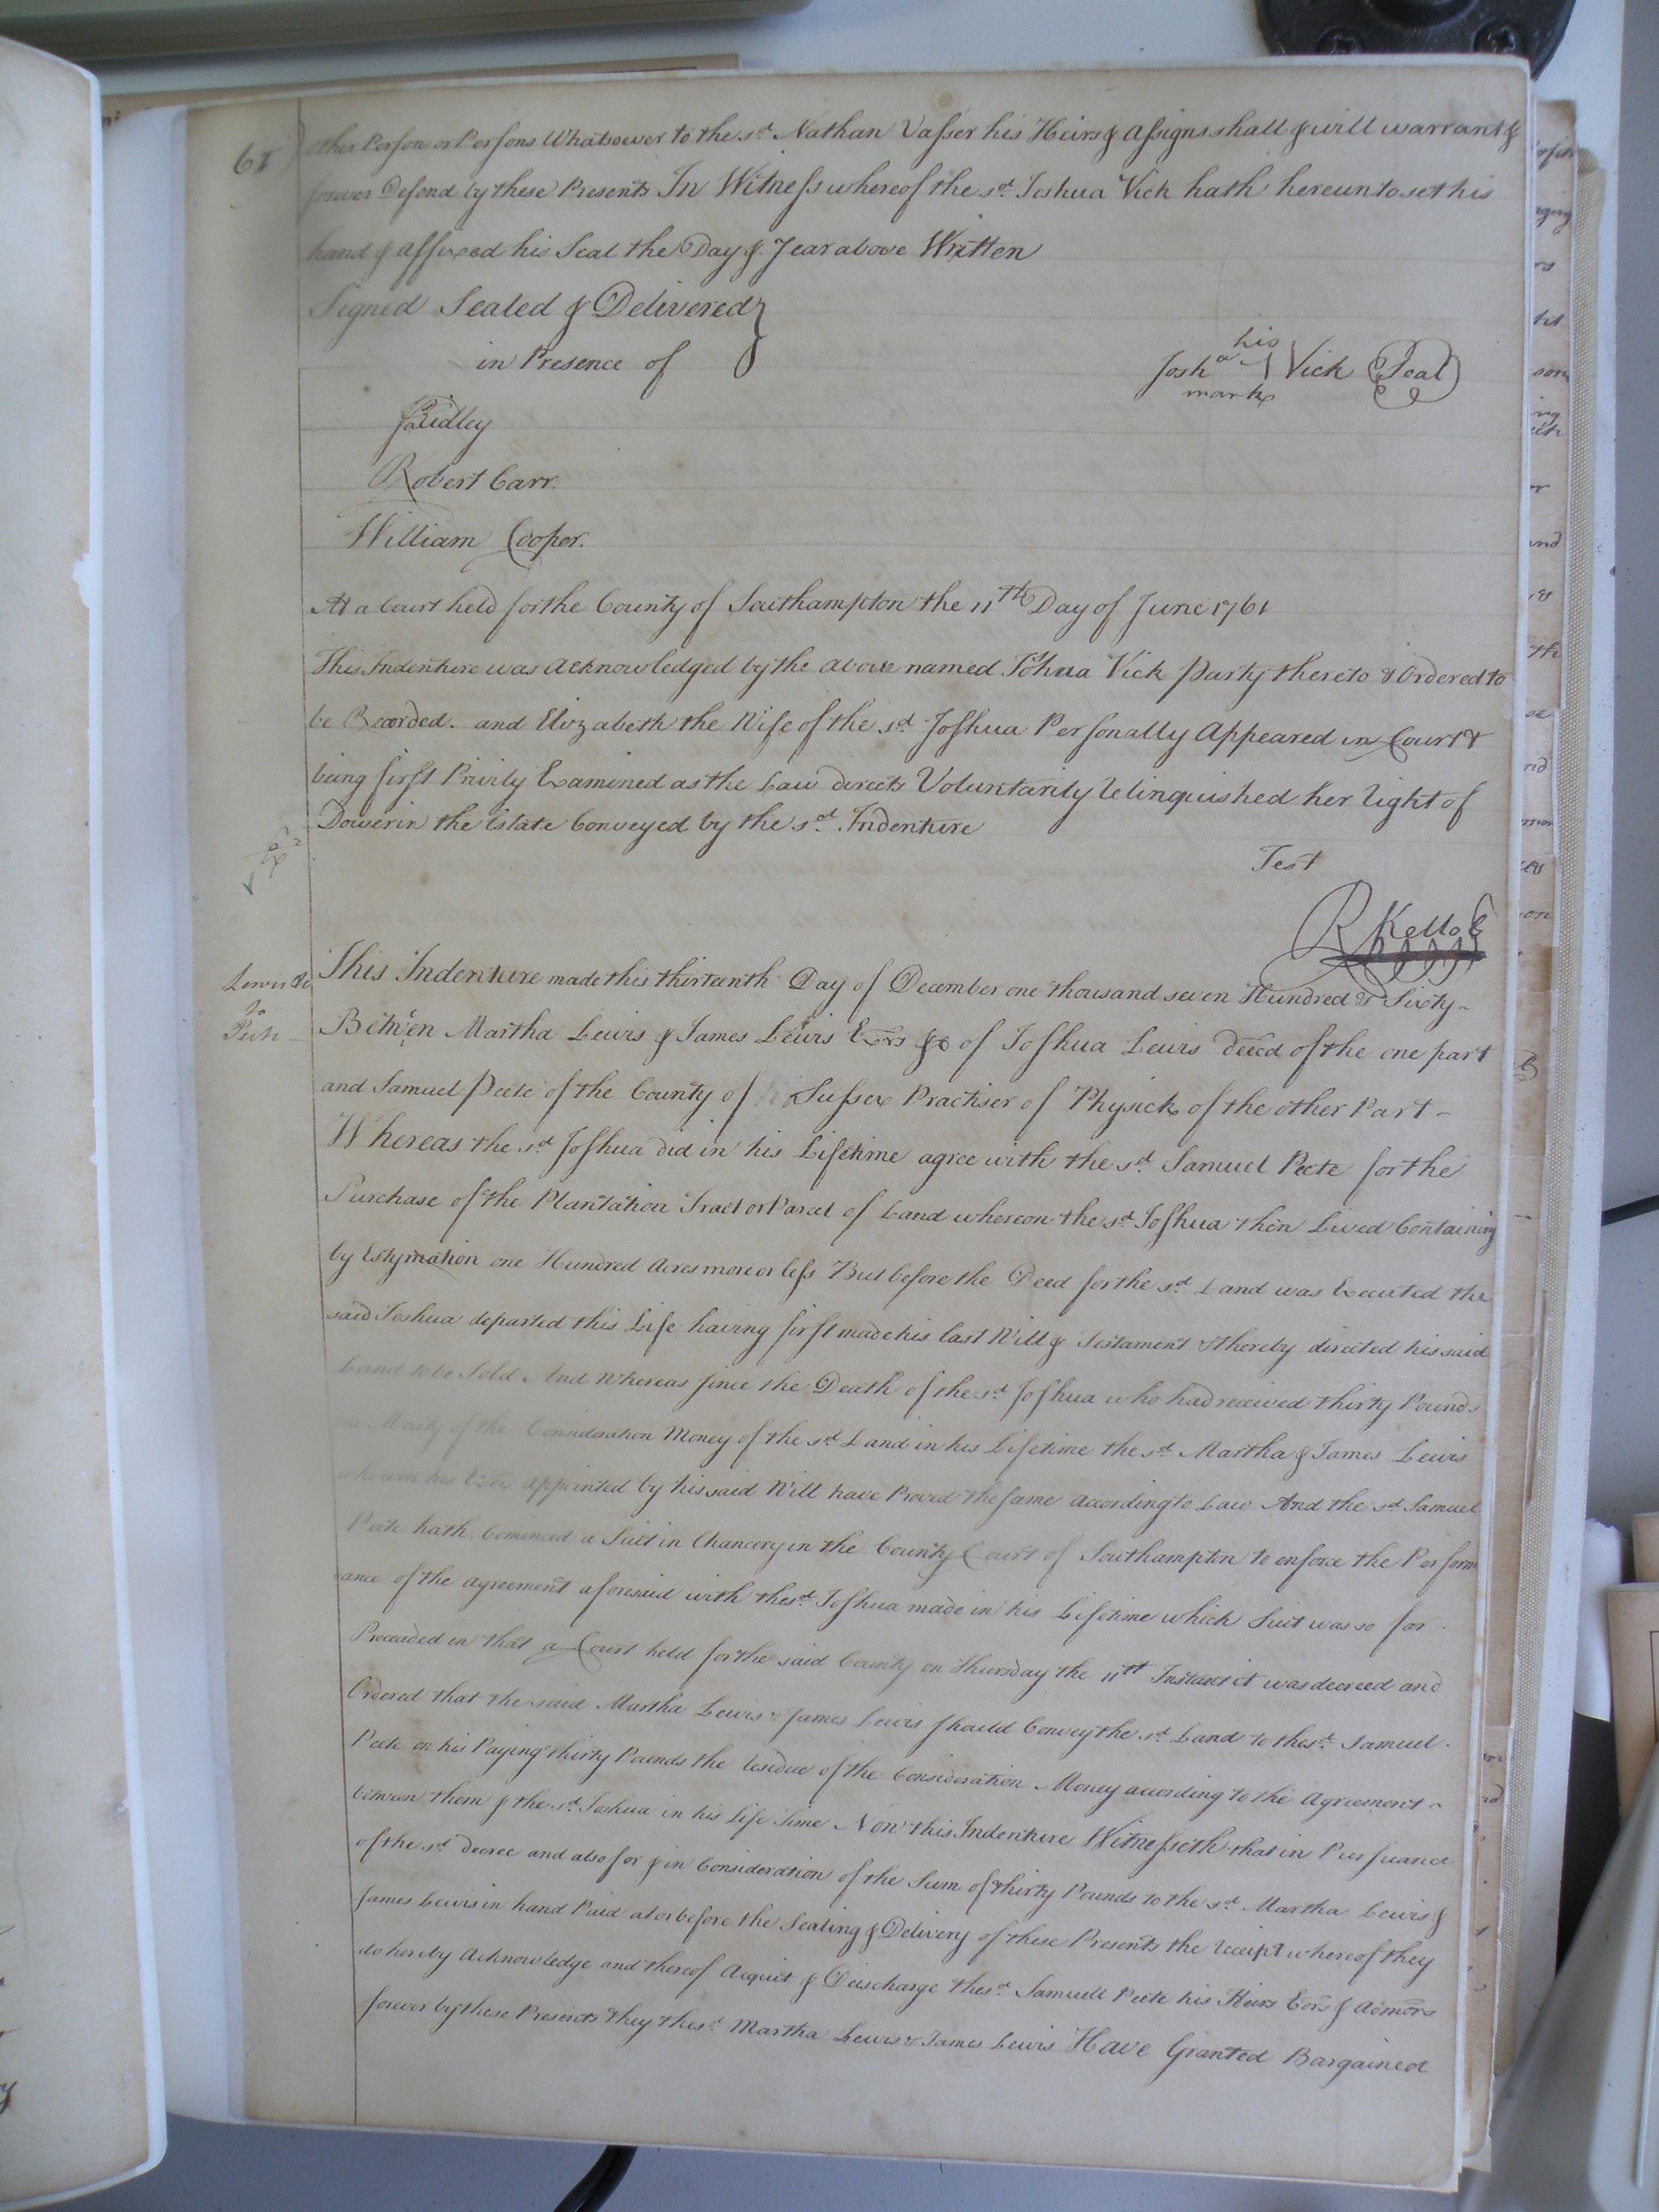 61
other Person or Persons Whatsoever to the sd. Nathan Vasser his Heirs & assigns shall & will warrant &
forever Defend by these Presents In Witness whereof the sd. Joshua Vick hath hereunto set his
hand & affixed his Seal the Day & Year above Written
Signed Sealed & Delivered
in Presence of
his
Josha Vick Seal
mark
Ridley
Robert Carr.
William Cooper.
At a Court held for the County of Southampton the 11th Day of June 1761
This Indenture was acknowledged by the above named Joshua Vick party thereto & Ordered to
be Recorded. and Elizabeth the Wife of the sd. Joshua Personally Appeared in Court &
being first Privily Examined as the Law directs Voluntarily relinquished her right of
Dower in the Estate Conveyed by the sd. Indenture
Test
R Kello C
Lewis &c
To
Peete
This Indenture made this thirteenth Day of December one thousand seven Hundred & Sixty
Between Martha Lewis & James Lewis Exrs &c of Joshua Lewis deced of the one part
and Samuel Peete of the County of Sussex Practiser of Physick of the other Part
Whereas the sd. Joshua did in his Lifetime agree with the sd. Samuel Peete for the
Purchase of the Plantation Tract or Parcel of Land whereon the sd. Joshua then Lived Containing
by Estymation one Hundred Acres more or less But before the Deed for the sd. Land was Executed the
said Joshua departed this Life having first made his last Will & Testament & thereby directed his said
Land to be Sold. And Whereas since the Death of the sd. Joshua who had received thirty Pounds
one Moiety of the Consideration Money of the sd. Land in his Lifetime the sd. Martha & James Lewis
who were his Exors appointed by his said Will have Proved the same according to Law And the sd. Samuel
Peete hath Comenced a Suit in Chancery in the County Court of Southampton to enforce the Perform
ance of the agreement aforesaid with the sd. Joshua made in his Lifetime which Suit was so far
Proceeded in that a Court held for the said County on Thursday the 11th Instant it was decreed and
Ordered that the said Martha Lewis & James Lewis should Convey the sd. Land to the sd. Samuel
Peete on his Paying thirty Pounds the residue of the Consideration Money according to the Agreement
between them & the sd. Joshua in his Life Time Now this Indenture Witnesseth that in Pursuance
of the sd. decree and also for & in Consideration of the Sum of thirty Pounds to the sd. Martha Lewis &
James Lewis in hand Paid at or before the Sealing & Delivery of these Presents the receipt whereof they
do hereby Acknowledge and thereof Acquit & Discharge the sd. Samuell Peete his Heirs Exors & Admors
forever by these Presents they the sd. Martha Lewis & James Lewis Have Granted Bargained